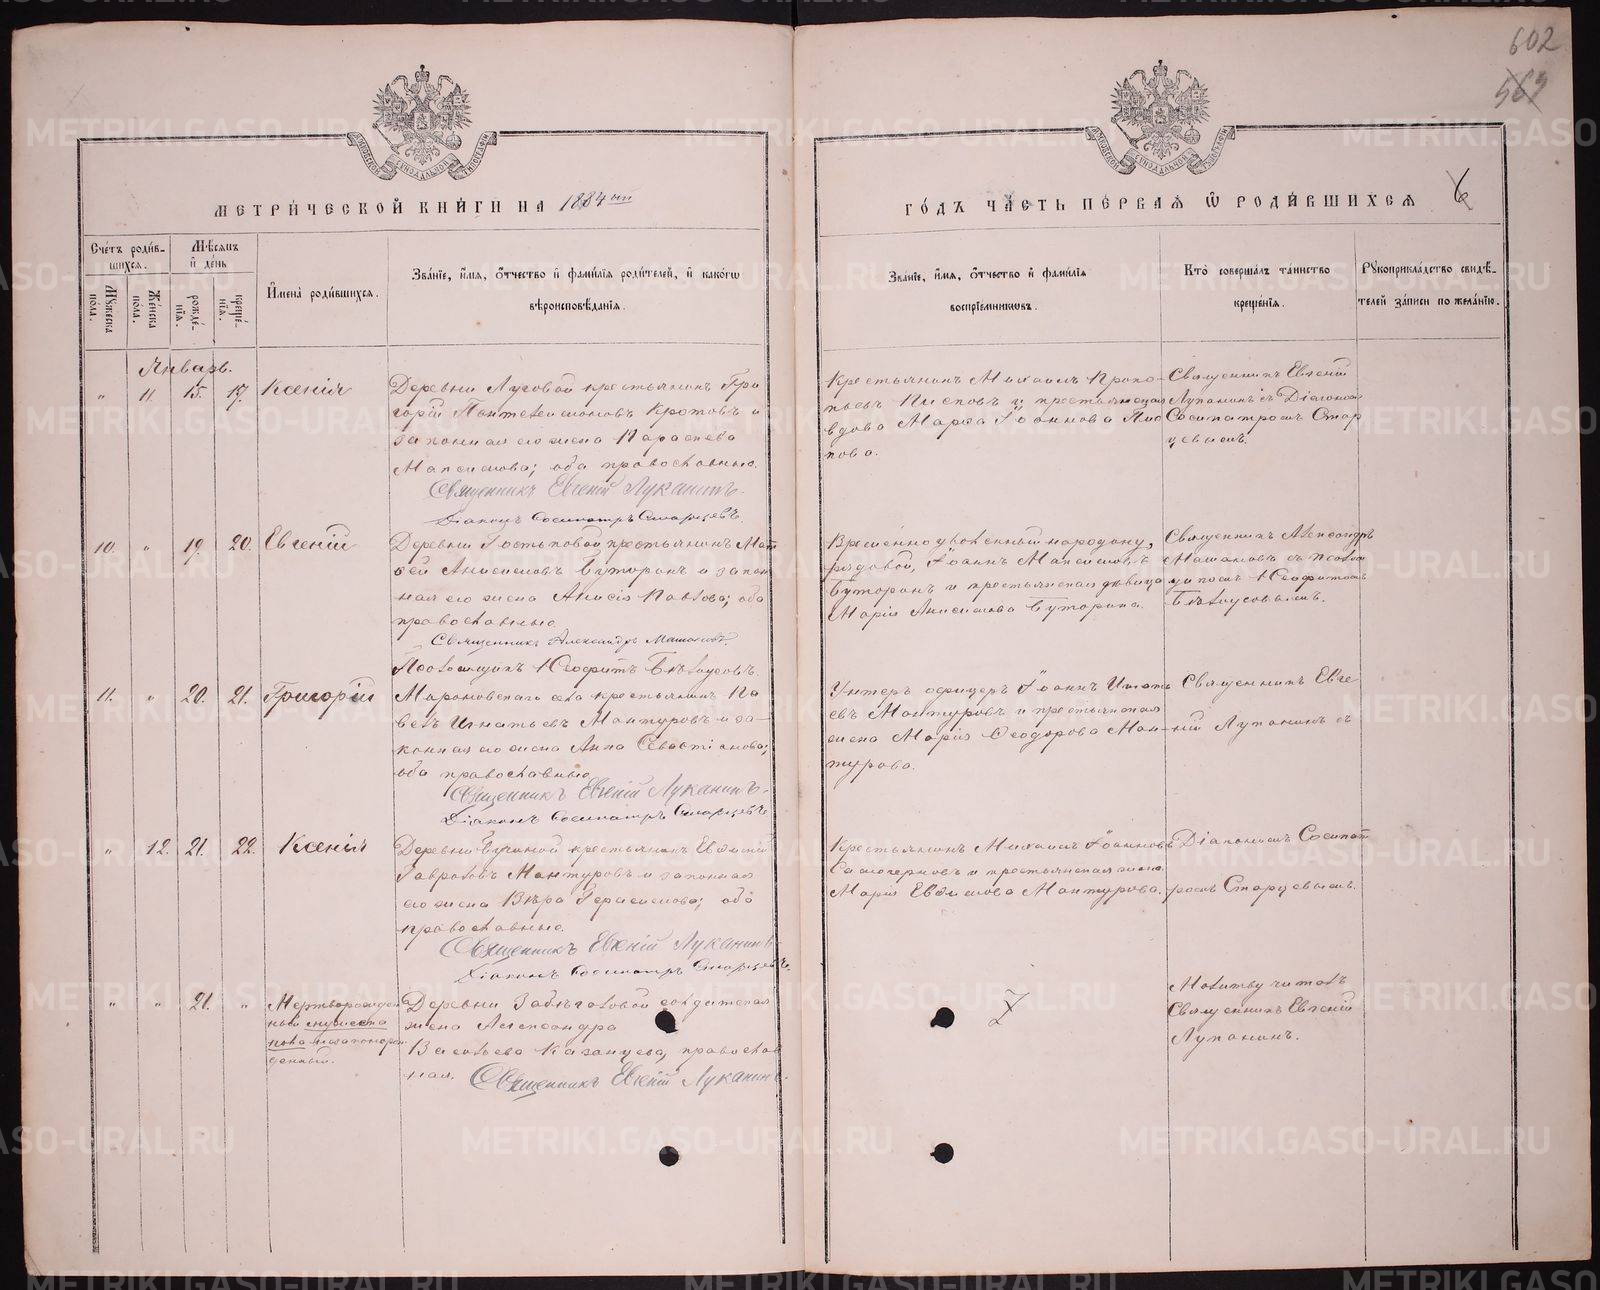 602
569
МЕТРИ́ЧЕСКОЙ КНИ́ГИ НА 1884ый
ГО́ДЪ ЧА́СТЬ ПЕ́РВАЯ Ѿ РОДИ́ВШИХСЯ
6
Сче́тъ роди́в-
шихся.
Мѣ́сяцъ
и де́нь
Имена̀ роди́вшихся.
Зва́нїе, и́мя, о́тчество и фами́лїя роди́телей, и како́гѡ
вѣроисповѣ́данїя.
Зва́нїе, и́мя, о́тчество и фами́лїя
воспрїе́мникѡвъ.
Кто̀ соверша́лъ та́инство
креще́нїя.
Рукоприкла́дство свидѣ́-
телей за́писи по жела́нїю.
Му́жеска
по́ла.
Же́нска
по́ла.
рожде́-
нїя.
креще́-
нїя.
Январь.
" 11. 15. 17. Ксенія
Деревни Луговой крестьянинъ Гри
горій Пантелеимоновъ Кротовъ и
законная его жена Параскева
Максимова; оба православные.
Священникъ Евгеній Луканинъ.
Діаконъ Сосипатръ Старцевъ.
Крестьянинъ Михаилъ Проко-
пьевъ и крестьянская
вдова Марѳа Іоаннова
Священникъ Евгеній
Луканинъ съ Діакономъ
Сосипатромъ Стар
цевымъ.
10. " 19. 20. Евгеній
Деревни крестьянинъ Мат
ѳей Анисимовъ Буторинъ и закон
ная его жена Анисія Павлова; оба
православные.
Священникъ Александръ Машановъ.
Псаломщикъ Неофитъ Бѣлоусовъ.
Временно уволенный народину,
рядовой, Іоаннъ Максимовъ
Буторинъ и крестьянская дѣвица
Марія Анисимова Буторина.
Священникъ Александръ
Машановъ съ псалом
щикомъ Неофитомъ
Бѣлоусовымъ.
11. " 20. 21. Григорій
села крестьянинъ Па
велъ Игнатьевъ Мантуровъ и за-
конная его жена Анна Севастіанова;
оба православные.
Священникъ Евгеній Луканинъ.
Діаконъ Сосипатръ Старцевъ
Унтеръ офицеръ Іоаннъ Игнать
евъ Мантуровъ и крестьянская
жена Марія Ѳеодорова Ман-
турова.
Священникъ Евге
ній Луканинъ съ
" 12. 21. 22. Ксенія
Деревни крестьянинъ Евѳимій
Гавриловъ Мантуровъ и законная
его жена Вѣра Герасимова; оба
православные.
Священникъ Евгеній Луканинъ
Діаконъ Сосипатръ Старцевъ.
Крестьянинъ Михаилъ Іоанновъ
и крестьянская жена
Марія Евѳимова Мантурова.
Діакономъ Сосипат
ромъ Старцевымъ.
" " 21. " Мертворожден
ный мужеска
пола незаконорож
денный.
Деревни солдатская
жена Александра
Васильева Казанцева, православ
ная.
Священникъ Евгеній Луканинъ.
Z
Молитву читалъ
Священникъ Евгеній
Луканинъ.
METRIKI.GASO-URAL.RU